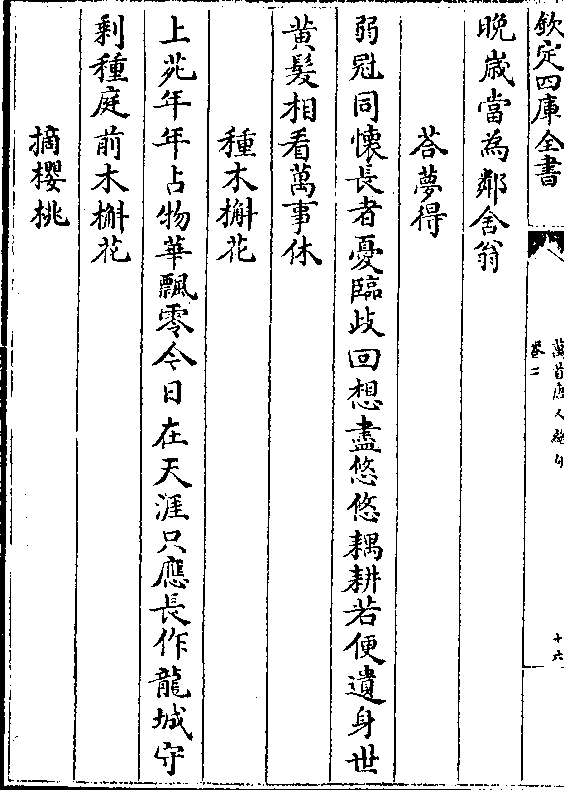 欽定四庫全書
萬首唐人絶句
卷二
十六
晚歳當為鄰舍翁
荅夢得
弱冠同懐長者憂臨歧回想盡悠悠耦耕若便遺身世
黄髮相看萬事休
種木槲花
上苑年年占物華飄零今日在天涯只應長作龍城守
剩種庭前木槲花
摘櫻桃